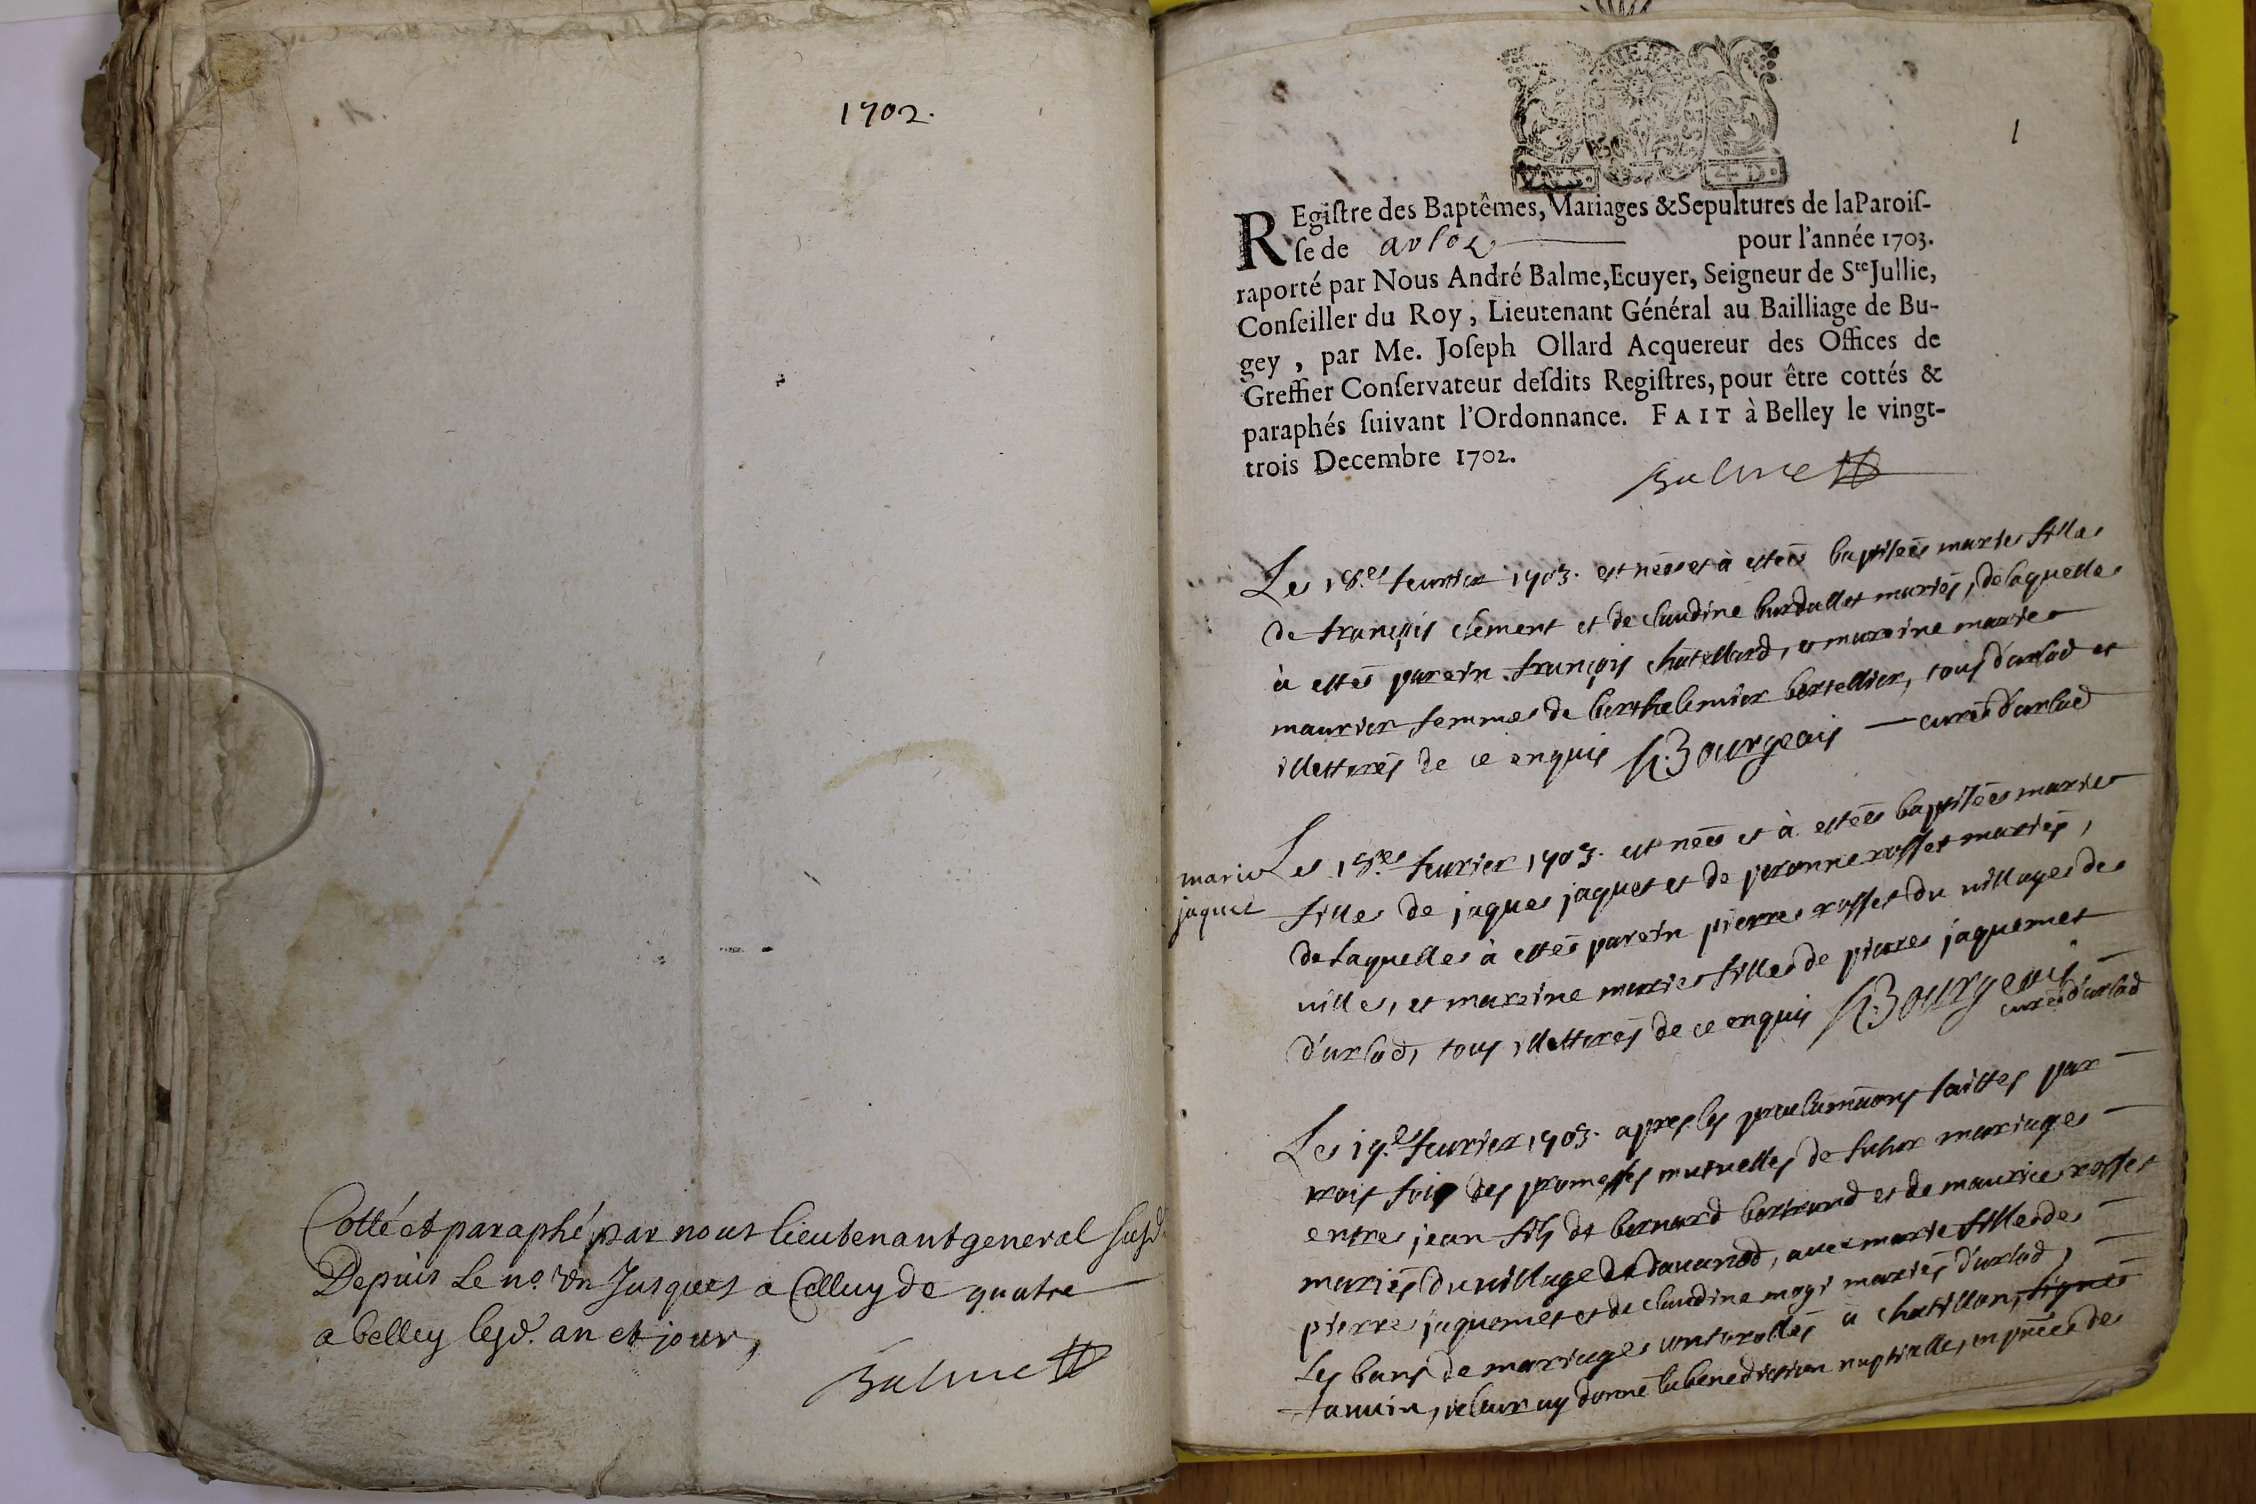 1702.
Cotté et paraphé par nous lieutenant general susd.
Depuis Le no. Un Jusques a Celluy de quatre
a belley lesd. an et jour,
Balme
1
REgiſtre des Baptêmes, Mariages & Sepultures de la Paroiſ-
ſe de arlod pour l'année 1703.
raporté par Nous André Balme, Ecuyer, Seigneur de Ste Jullie,
Conſeiller du Roy, Lieutenant Général au Bailliage de Bu-
gey, par Me. Joſeph Ollard Acquereur des Offices de
Greffier Conſervateur deſdits Regiſtres, pour être cottés &
paraphés ſuivant l'Ordonnance. FAIT à Belley le vingt-
trois Decembre 1702.
Balme
Le 18.e feuvrier 1703. est née et à estée baptisée marie fille
de françois clement et de claudine burdallet mariés, de laquelle
à esté parein françois chatellard, et mareine marie
maurier femme de berthelemier bertellier, tous d'arlod et
illettrés de ce enquis Bourgeois curé d'arlod
marie
jaquet
Le 18.e feurier 1703. est née et à estée baptisée marie
fille de jaque jaquet et de peronne rosset mariés,
de laquelle à esté parein pierre rosset du village de
ville, et mareine marie fille de pierre jaquemet
d'arlod, tous illettrés de ce enquis Bourgeois
curé d'arlod
Le 19.e feurier 1703. apres les proclamations faittes par
trois fois des promesses mutuelles de futur mariage
entre jean fils de bernard bertrand et de maurice rosset
mariés du village de, avec marie fille de
pierre jaquemet et de claudine mariés d'arlod,
les bans de mariage controllés à chatillon, signé
tanuin, je leur ay donné la benediction nuptialle, en présence de